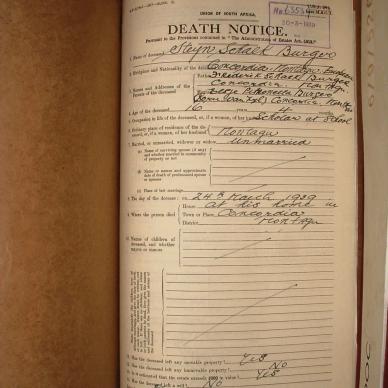 UNION OF SOUTH AFRICA.
No 6353/
30-3-1939
DEATH NOTICE.
Pursuant to the Provisions contained in "The Administration of Estates Act, 1913."
1. Name of deceased Steyn Schalk Burger
2. Birthplace and Nationality of the deceased Concordia, Montagu,
3. Names and Addresses of the Parents of the deceased
Father Frederick Schalk Burger
Concordia
Petronella Burger
(born Van Zyl) Concordia
4. Age of the deceased 16 years 4 months
5. Occupation in life of the deceased, or, if a woman, of her husband Scholar at School
6. Ordinary place of residence of the deceased, or, if a woman, of her husband Montagu
7. Married, or unmarried, widower or widow Unmarried
(i) Name of surviving spouse (if any) and whether married in community of property or not
(ii) Name or names and approximate date of death of predeceased spouse or spouses
(iii) Place of last marriage
8. The day of the decease: on 24th March 1939
9. Where the person died
House At his home in
Town or Place Concordia
District Montagu
10. Names of children of deceased, and whether majors or minors
11. Has the deceased left any movable property? Yes
12. Has the deceased left any immovable property? No
13. Is it estimated that the estate exceeds £300 in value? Yes
14. Has the deceased left a will? No